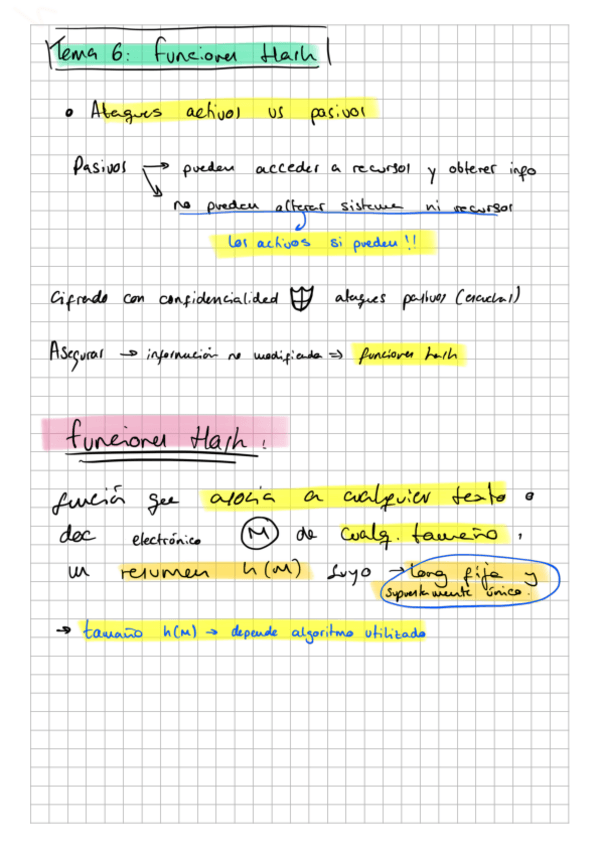 Tema 6: Funciones Hash
• Ataques activos vs pasivos
Pasivos → pueden acceder a recursos y obtener info
↘ no pueden alterar sistema ni recursos
los activos si pueden!!
Cifrado con confidencialidad ataques pasivos (escuchas)
Asegurar → información no modificada ⇒ funciones hash
funciones Hash:
función que asocia a cualquier texto o
doc electrónico M de cualq. tamaño,
un resumen h(M) suyo → long fija y
supuestamente único.
→ tamaño h(M) → depende algoritmo utilizado